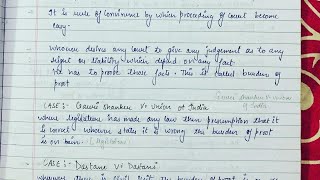 It is rule of convinience by which proceeding of court become
easy.
Whoever desires any court to give any judgement as to any
right or liability which depend over any fact.
He has to prove those facts. This is called burden of
proof
Gauri Shanker V Union
of India
CASE :- Gauri Shanker Vs Union of India
where legislation has made any law then presumption that it
is correct whoever stats it is wrong the burden of proof
is on him. (legislation)
CASE :- Dastane Vs Dastani
whoever there is Civil the burden of proof is on